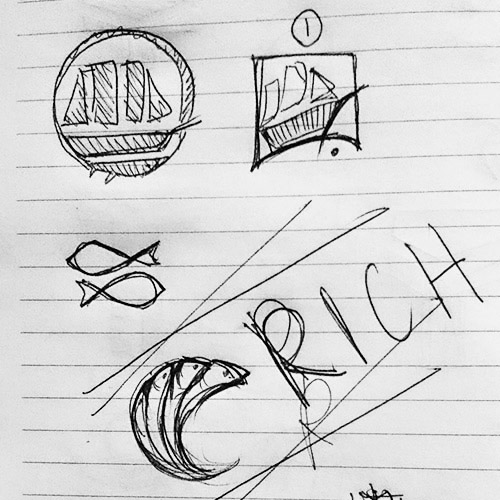 1
RICH
R